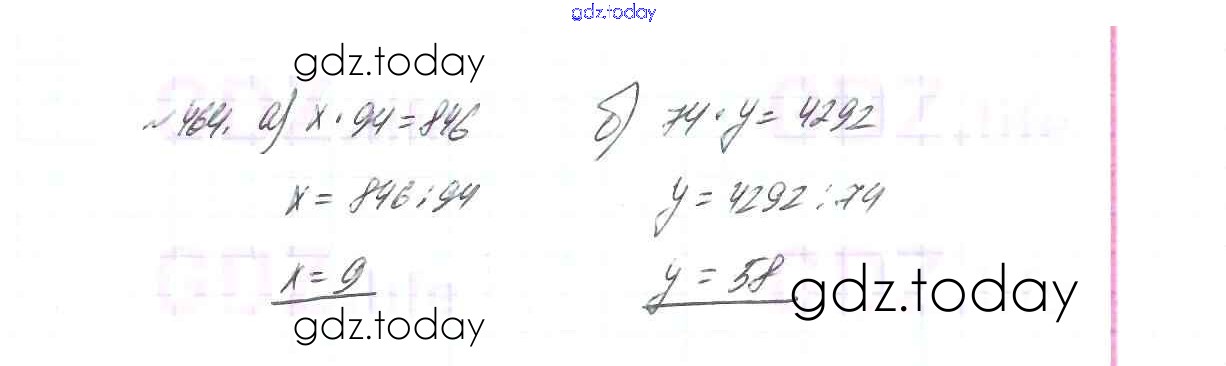 gdz.today
gdz.today
№464. а) x · 94 = 846 б) 74 · y = 4292
x = 846 : 94 y = 4292 : 74
x = 9 y = 58
gdz.today
gdz.today